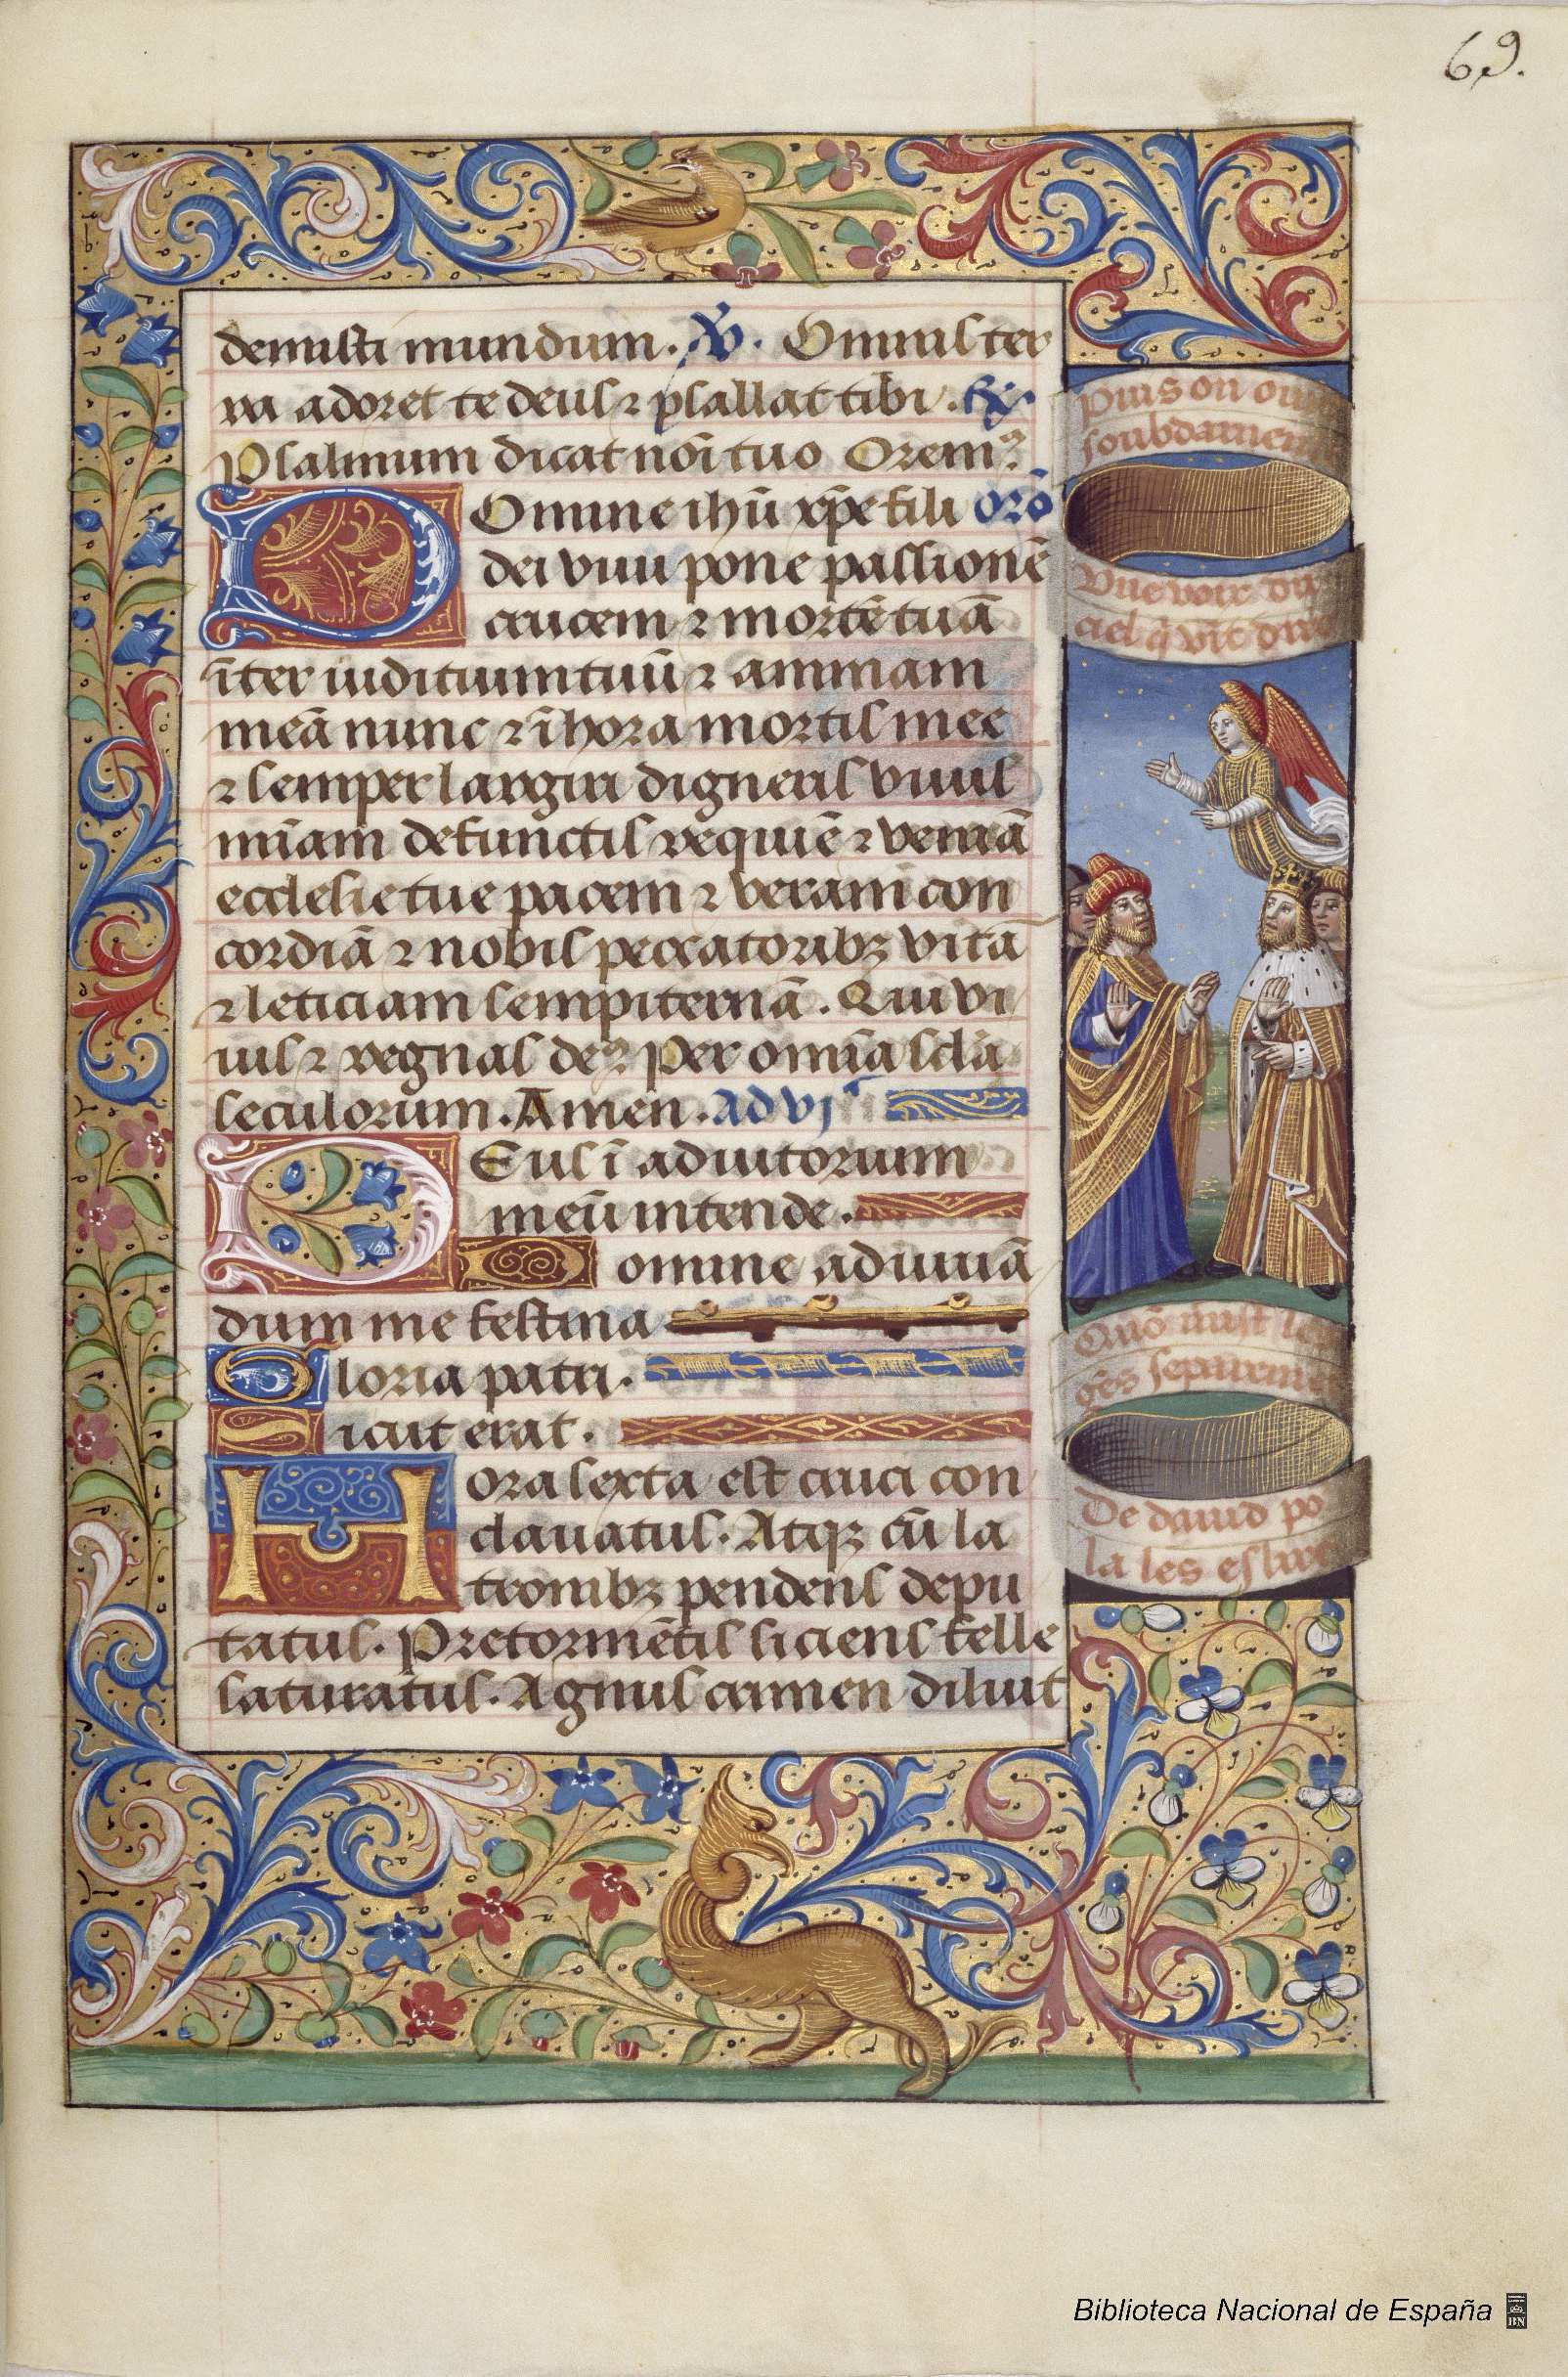 69.
demisti mundum. ℣. Omnis ter
ra adoret te deus ⁊ psallat tibi. ℟.
Psalmum dicat nōi tuo Oremꝰ.
Domine ihū xp̄e fili orō
dei vivi pone passionē
crucem ⁊ mortē tuā
īter iuditium tuū ⁊ animam
meā nunc ⁊ ī hora mortis mee
⁊ semper largiri digneris vivis
miām defunctis requiē ⁊ veniā
ecclesie tue pacem ⁊ veram con
cordiā ⁊ nobis peccatoribꝫ vitā
⁊ leticiam sempiternā. Qui vi
vis ⁊ regnas deꝰ. Per omīa scl̄a
seculorum. Amen. ad vjᵃ
Deus ī adiutorium
meū intende.
Domine adiuvā
dum me festina
Gloria patri.
Sicut erat.
Hora sexta est cruci con
clavatus. Atqꝫ cū la
tronibꝫ pendens depu
tatus. Pre tormētis siciens felle
saturatus. Agnus crimen diluit
Puis on
soubdainem
Une voix du
ciel q̄ vit
Quō
gēs separem
De david po
la les
Biblioteca Nacional de España
BN